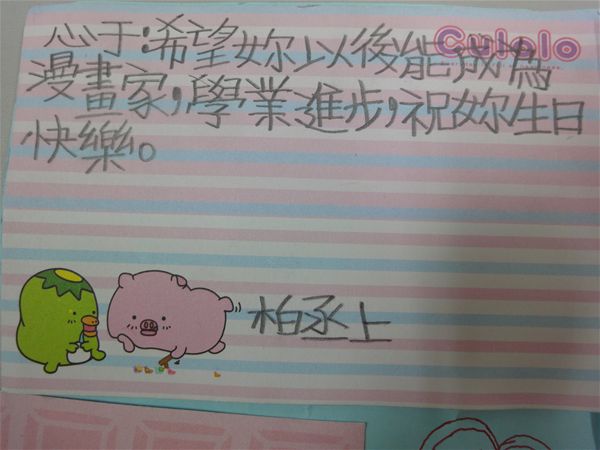 心于:希望妳以後能成為
漫畫家,學業進步,祝妳生日
快樂。
柏丞上